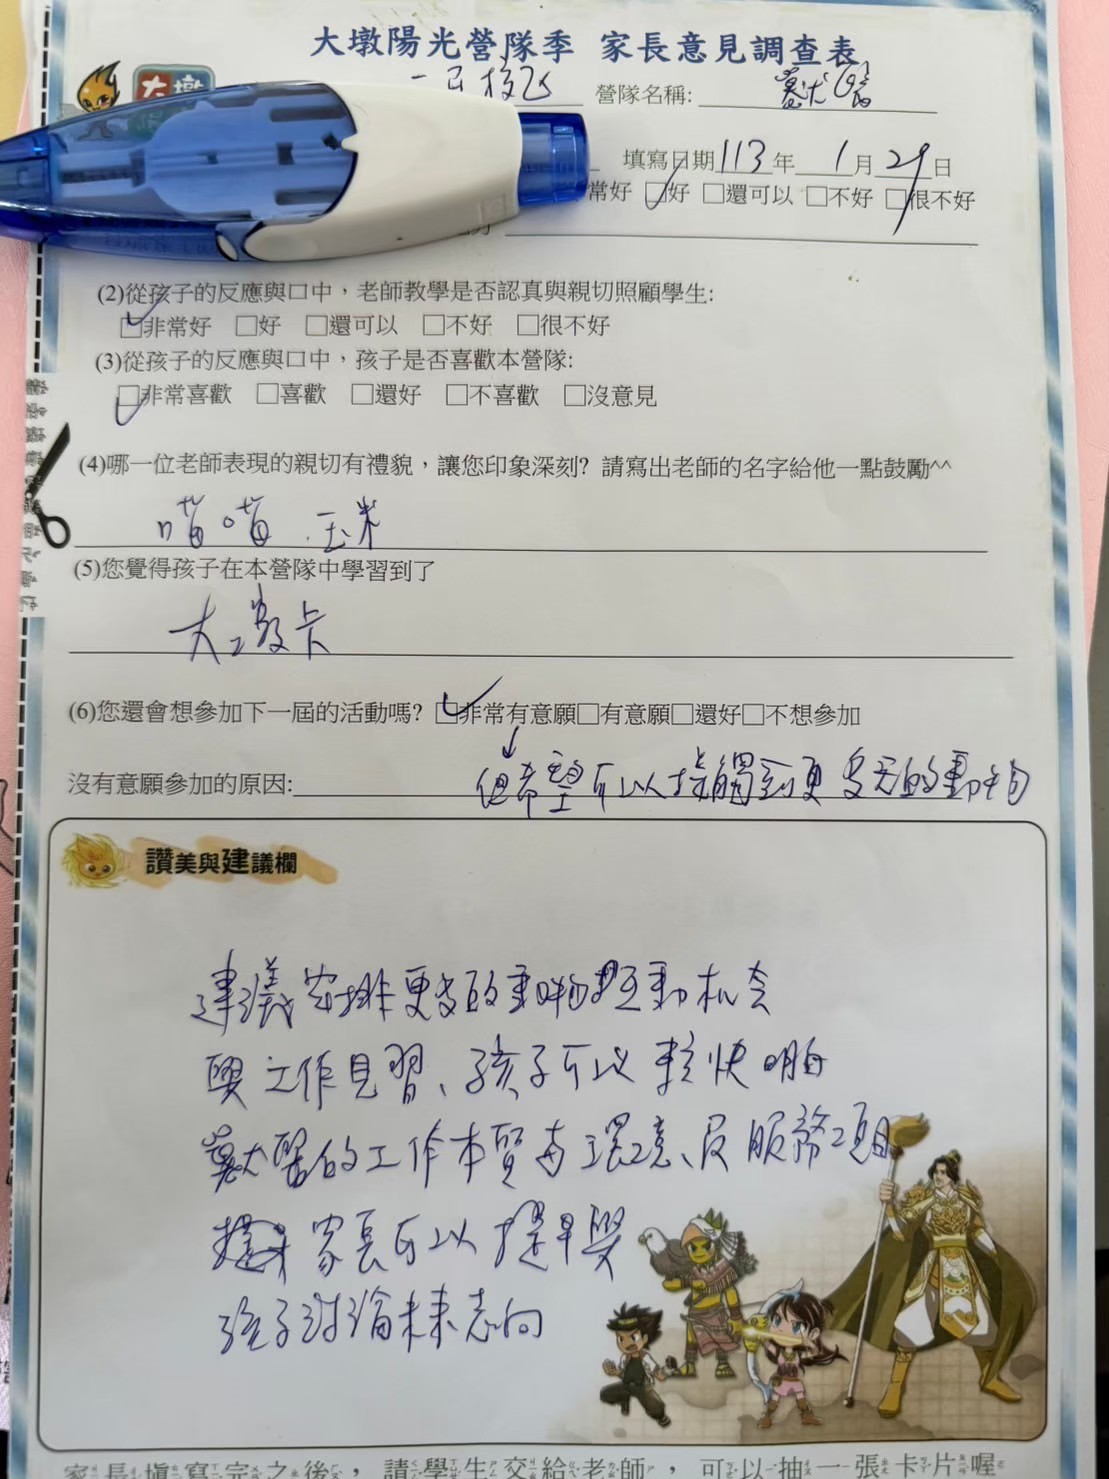 大墩陽光營隊季 家長意見調查表
大墩
營隊名稱: 獸犬醫
填寫日期113年 1月29日
常好 □好 □還可以 □不好 □很不好
(2)從孩子的反應與口中，老師教學是否認真與親切照顧學生:
□非常好 □好 □還可以 □不好 □很不好
(3)從孩子的反應與口中，孩子是否喜歡本營隊:
□非常喜歡 □喜歡 □還好 □不喜歡 □沒意見
(4)哪一位老師表現的親切有禮貌，讓您印象深刻? 請寫出老師的名字給他一點鼓勵^^
喵喵、玉米
(5)您覺得孩子在本營隊中學習到了
(6)您還會想參加下一屆的活動嗎? □非常有意願□有意願□還好□不想參加
沒有意願參加的原因: 但希望可以接觸到更多元的動物
讚美與建議欄
建議安排更多的動物互動機會
與工作見習、孩子可以較快明白
獸醫的工作本質與環境、及服務項目
家長可以提早與
孩子討論未來志向
家長填寫完之後，請學生交給老師，可以抽一張卡片喔